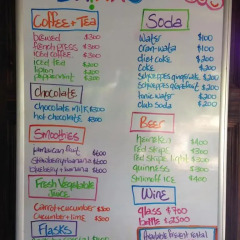 Coffee + Tea
brewed $300
french press $300
iced coffee $300
iced tea $200
$200
peppermint $200
Chocolate
chocolate milk $300
hot chocolate $300
Smoothies
Jamaican fruit $600
Strawberry + banana $600
+ banana $600
Fresh Vegetable
Juice
Carrot + cucumber $300
Cucumber + lime $300
Flasks
Soda
water $100
cran-water $100
diet coke $200
Coke $200
Schweppes $200
Schweppes grapefruit $200
tonic water $200
club soda $200
Beer
heineken $400
red stripe $300
red stripe light $300
guinness $300
Smirnoff ice $400
Wine
glass $700
bottle $2500